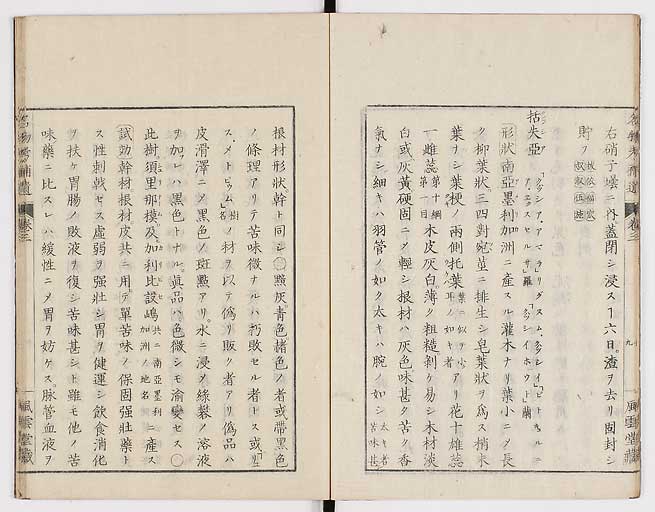 右硝子壜ニ内蓋閉シ浸スヿ六日。渣ヲ去リ固封シ
貯ヲ
括失亞
形狀南亞墨利加洲ニ產スル灌木ナリ葉小ニメ長
ク柳葉狀三四對宛莖ニ排生シ皂葉狀ヲ爲ス梢末
葉ナシ葉梗ノ兩側托葉アリ花十雄蕊
一雌蕊 第十綱 第一目 木皮灰白。薄ク粗糙剝ケ易シ木材淡
白或ハ灰黃硬固ニメ輕シ根材ハ灰色。味甚タ苦ク香
氣ナシ細キハ羽管ノ如ク太キハ腕ノ如シ 太キ者 苦味甚
根材形狀幹ト同シ黯灰。青色赭色ノ者或帶黑色
ノ條理アリテ苦味微ナルハ朽敗セル者トス或
樹名ノ材ヲ以テ僞リ販ク者アリ僞品ハ
皮滑澤ニメ黑色ノ斑點アリ。水ニ浸メ綠礬ノ溶液
ヲ加レハ黑色トナル。眞品ハ色微シモ渝變セス
此樹須里那模及加利比設嶋 共ニ南亞墨利加洲ノ地名 ニ產ス
試効幹材根材皮共ニ用テ單苦味ノ保固强壯藥ト
ス性刺戟セス虛弱ヲ强壯シ胃ヲ健運シ飮食消化
ヲ扶ケ胃腸ノ敗液ヲ復シ苦味甚シト雖モ他ノ苦
味藥ニ比スレハ緩性ニメ胃ヲ妨ケス。脉管血液ヲ
名物考補遺 卷三
風雲堂藏